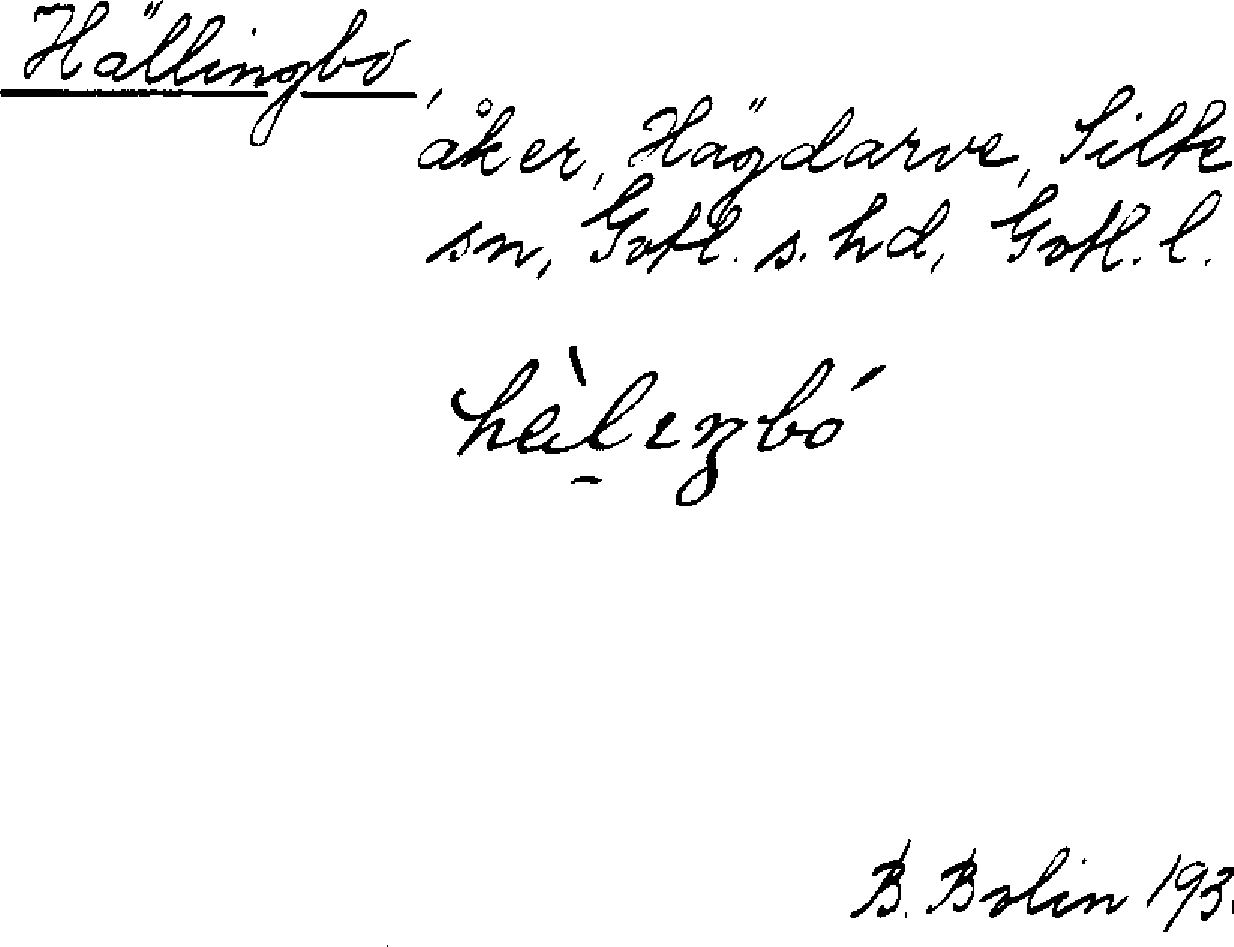 Hällingbo,
åker, Hägdarve, Silte
sn, Gotl. s. hd, Gotl. l.
B. Bolin 193